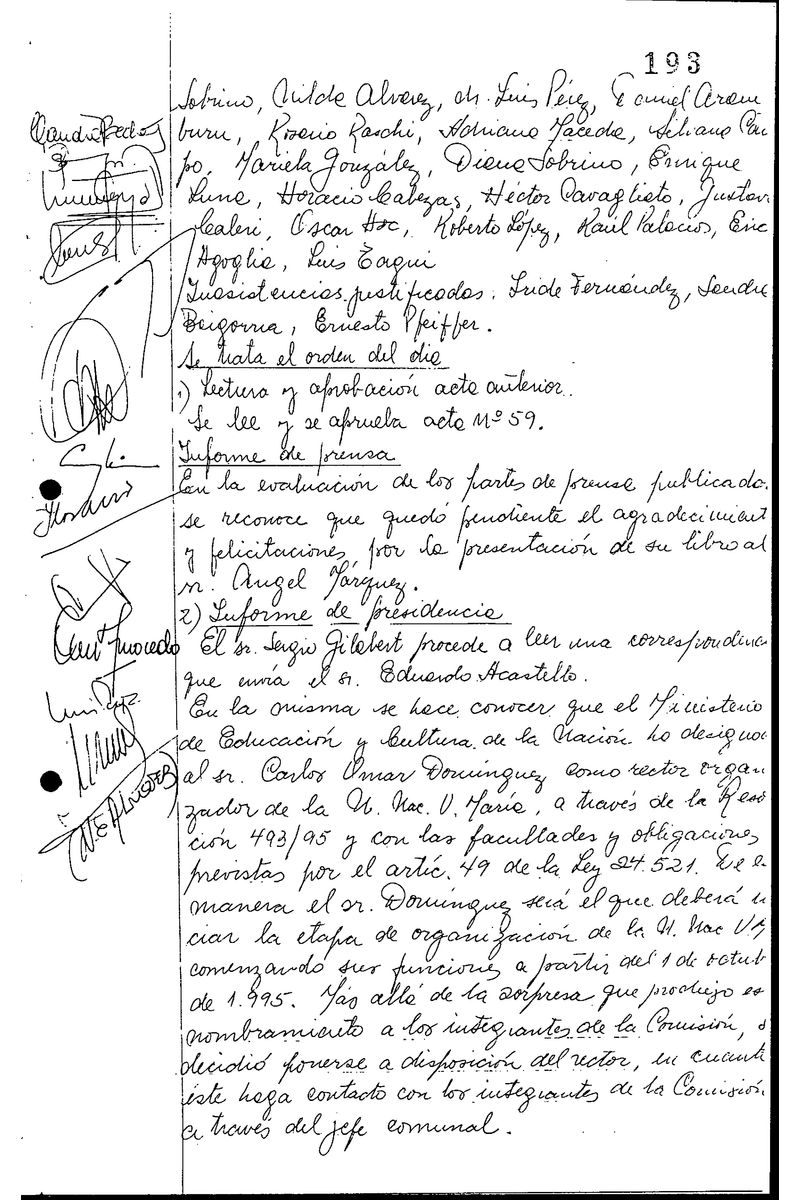 193
Sobrino, Nilda Alvarez, dr. Luis Pérez, Daniel Aram
buru, Rosario Raschi, Adriana Maceda, Silvana Cam
po, Mariela González, Diana Sobrino, Enrique
Luna, Horacio Cabezas, Héctor Cavagliato, Gustav
Caleri, Oscar Hoc, Roberto López, Raúl Palacios, Eric
Agoglia, Luis
Inasistencias justificadas: Iride Fernández, Sandra
Beigorria, Ernesto Pfeiffer.
Se trata el orden del dia
1) Lectura y aprobación acta anterior.
Se lee y se aprueba acta Nº 59.
Informe de prensa
En la evaluación de los partes de prensa publicado
se reconoce que quedó pendiente el agradecimient
y felicitaciones por la presentación de su libro al
sr. Angel Márquez.
2) Informe de presidencia
El sr. Sergio Gilabert procede a leer una correspondenc
que envía el sr. Eduardo Acastello.
En la misma se hace conocer que el Ministerio
de Educación y Cultura de la Nación ha designa
al sr. Carlos Omar Domínguez como rector organ
zador de la U. Nac. V. María, a través de la Reso
ción 493/95 y con las facultades y obligaciones
previstas por el artíc. 49 de la Ley 24.521. De e
manera el sr. Domínguez será el que deberá i
ciar la etapa de organización de la U. Nac V M
comenzando sus funciones a partir del 1 de octub
de 1.995. Más allá de la sorpresa que produjo es
nombramiento a los integrantes de la Comisión, s
decidió ponerse a disposición del rector, en cuanto
éste haga contacto con los integrantes de la Comisión
a través del jefe comunal.